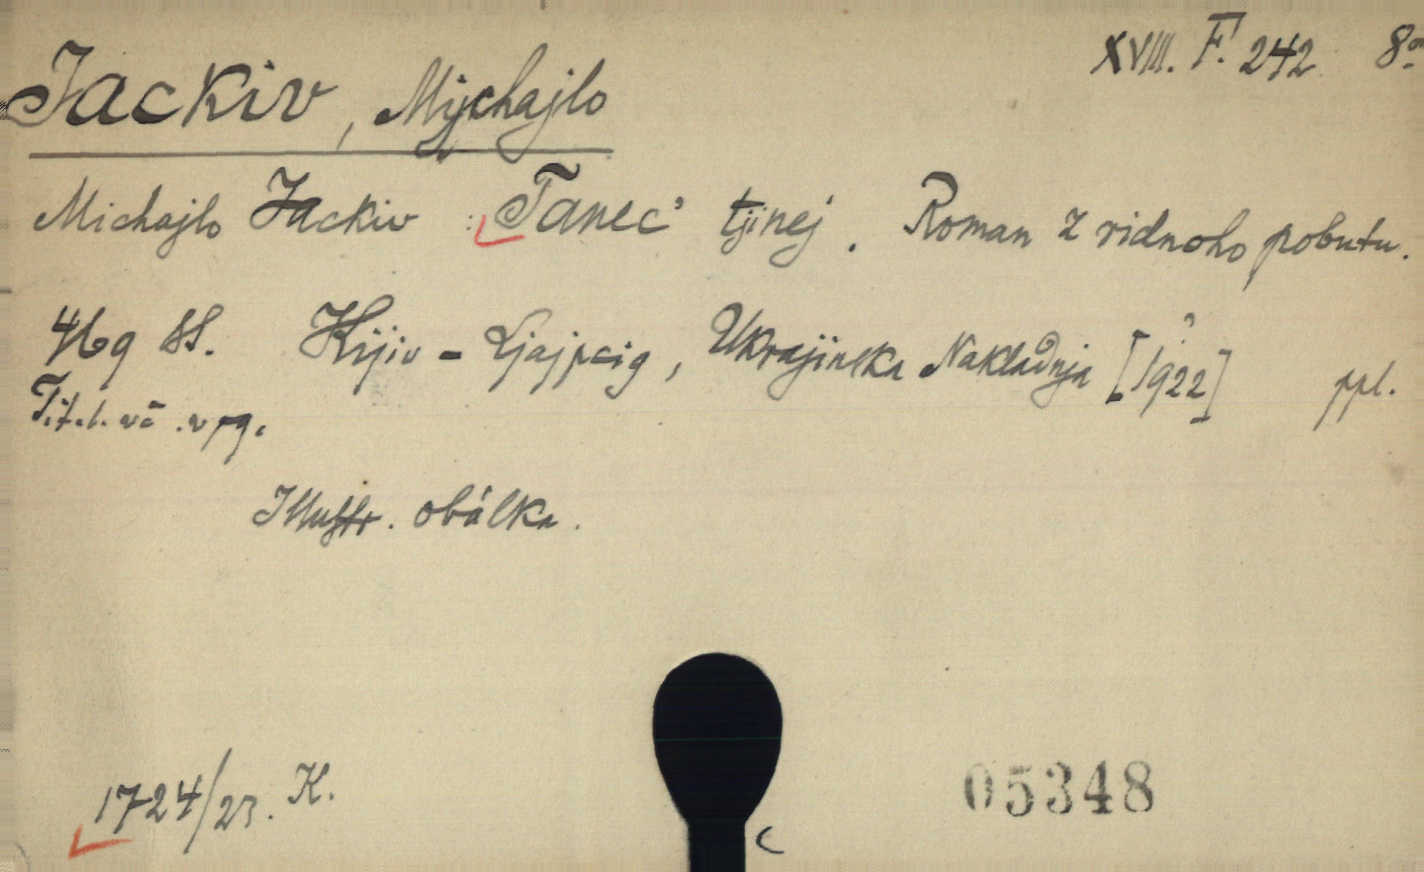 XVIII. F. 242 8°
Jackiv, Mychajlo
Michajlo Jackiv : Tanec' tjinej. Roman z ridnoho pobutu.
469 SS. Kijiv - Ljajpcig, Ukrajinska Nakladnja [1922] ppl.
Tit. l.
Illustr. obálka.
1724/23. K.
05348